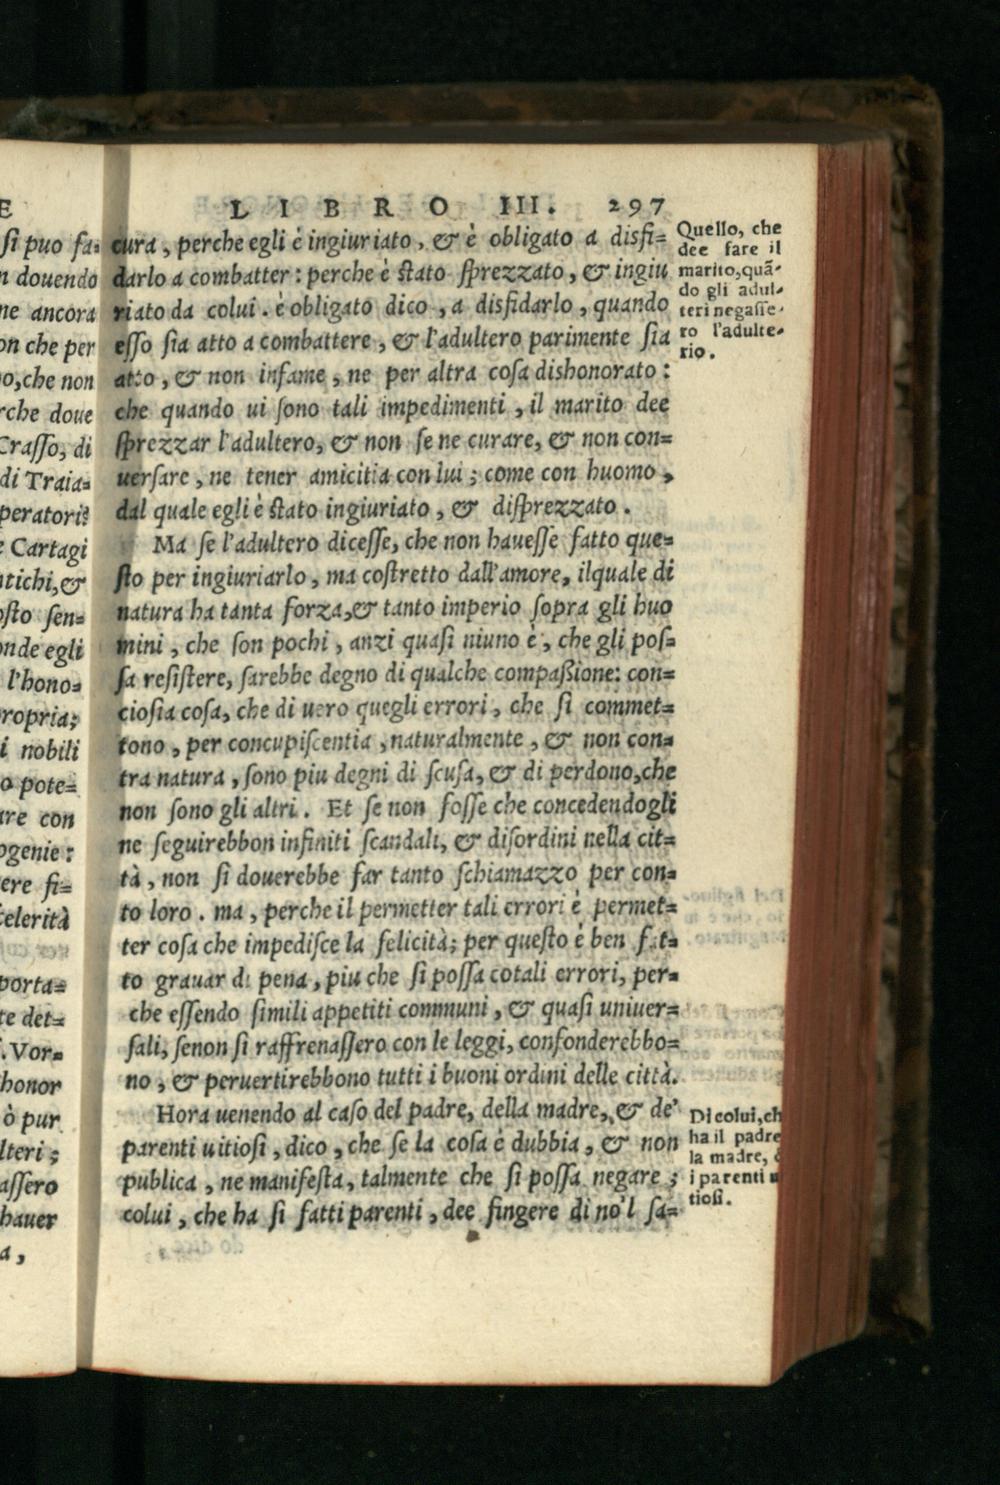 LIBRO III. 297
cura, perche egli è ingiuriato, & è obligato a disfi=
darlo a combatter: perche è ſtato ſprezzato, & ingiu
riato da colui. è obligato dico, a disfidarlo, quando
eſſo ſia atto a combattere, & l'adultero parimente ſia
atto, & non infame, ne per altra coſa dishonorato:
che quando ui ſono tali impedimenti, il marito dee
ſprezzar l'adultero, & non ſe ne curare, & non con=
uerſare, ne tener amicitia con lui; come con huomo,
dal quale egli è ſtato ingiuriato, & diſprezzato.
Ma ſe l'adultero diceſſe, che non haueſſe fatto que=
ſto per ingiuriarlo, ma coſtretto dall'amore, ilquale di
natura ha tanta forza,& tanto imperio ſopra gli huo
mini, che ſon pochi, anzi quaſi niuno è, che gli poſ=
ſa reſiſtere, ſarebbe degno di qualche compaßione: con=
cioſia coſa, che di uero quegli errori, che ſi commet=
tono, per concupiſcentia, naturalmente, & non con=
tra natura, ſono piu degni di ſcuſa, & di perdono,che
non ſono gli altri. Et ſe non foſſe che concedendogli
ne ſeguirebbon infiniti ſcandali, & diſordini nella cit=
tà, non ſi douerebbe far tanto ſchiamazzo per con=
to loro. ma, perche il permetter tali errori è permet=
ter coſa che impediſce la felicità; per queſto è ben fat=
to grauar di pena, piu che ſi poſſa cotali errori, per=
che eſſendo ſimili appetiti communi, & quaſi uniuer=
ſali, ſenon ſi raffrenaſſero con le leggi, confonderebbo=
no, & peruertirebbono tutti i buoni ordini delle città.
Hora uenendo al caſo del padre, della madre, & de'
parenti uitioſi, dico, che ſe la coſa è dubbia, & non
publica, ne manifeſta, talmente che ſi poſſa negare;
colui, che ha ſi fatti parenti, dee fingere di no'l ſa=
Quello, che
dee fare il
marito,quã-
do gli adul-
teri negaſſe-
ro l'adulte-
rio.
Di colui,ch
ha il padre
la madre,
i parenti u
tioſi.
E
ſi puo fa=
n douendo
ne ancora
on che per
o,che non
rche doue
Craſſo, di
di Traia=
peratori?
e Cartagi
ntichi,&
oſto ſen=
onde egli
l'hono=
ropria;
i nobili
o pote=
are con
ogenie:
ere ſi=
celerità
porta=
te det=
. Vor=
honor
ò pur
lteri;
aſſero
hauer
a,